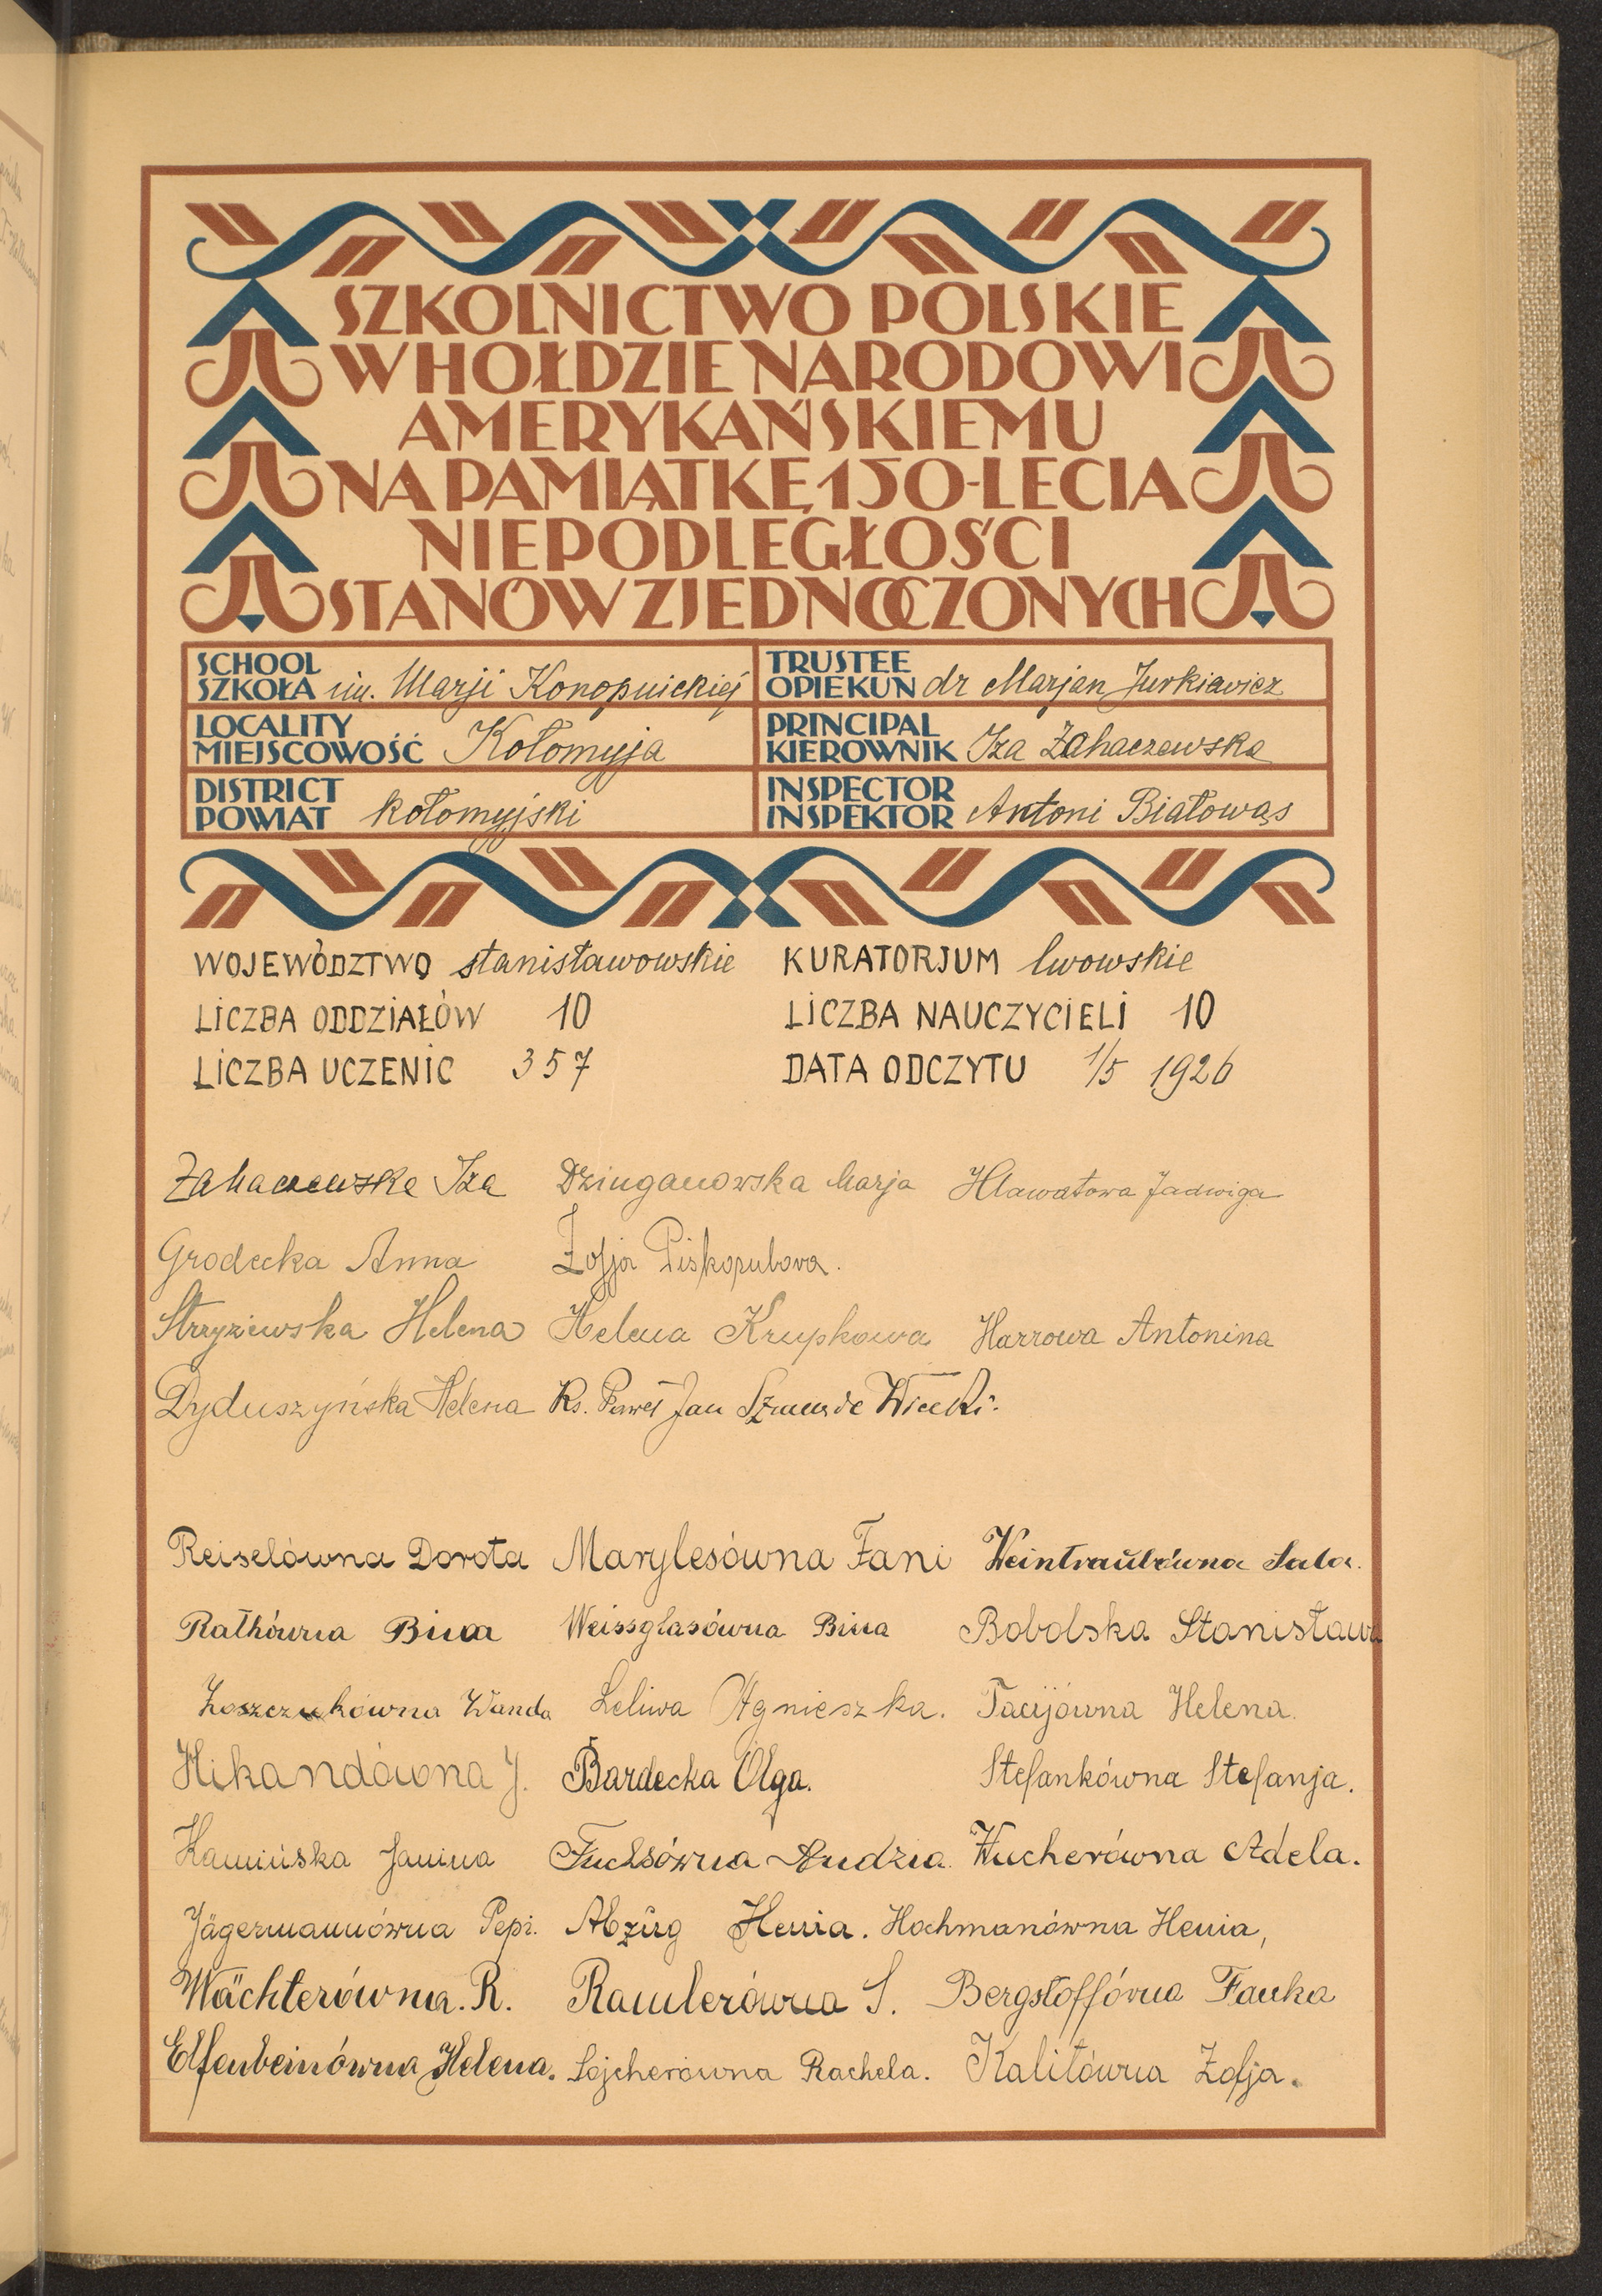 SZKOLNICTWO POLSKIE
W HOŁDZIE NARODOWI
AMERYKAŃSKIEMU
NA PAMIĄTKĘ 150-LECIA
NIEPODLEGŁOŚCI
STANÓW ZJEDNOCZONYCH
SCHOOL
SZKOŁA im. Marji Konopnickiej
TRUSTEE
OPIEKUN dr Marjan Jurkiewicz
LOCALITY
MIEJSCOWOŚĆ Kołomyja
PRINCIPAL
KIEROWNIK Iza Zahaczewska
DISTRICT
POWIAT kołomyjski
INSPECTOR
INSPEKTOR Antoni Białowąs
WOJEWÓDZTWO stanisławowskie KURATORJUM lwowskie
LICZBA ODDZIAŁÓW 10 LICZBA NAUCZYCIELI 10
LICZBA UCZENIC 357 DATA ODCZYTU 1/5 1926
Zahaczewska Iza Dziuganowska Marja Hlawatowa Jadwiga
Grodecka Anna Zofja Piskozubowa.
Stryziewska Helena Helena Krupkowa Harrowa Antonina
Dyduszyńska Helena Ks. Paweł Jan Wiecki.
Reiselówna Dorota Marylesówna Fani Weintraubówna Sala.
Rathówna Bina Weissglasówna Bina Bobolska Stanisława
Wanda Leliwa Agnieszka. Tacijówna Helena.
Hikandówna J. Bardecka Olga. Stefankówna Stefanja.
Kamińska Janina Fuchsówna Andzia. Wucherówna Adela.
Jägermannówna Pepi. Abzug Henia. Hochmanówna Henia,
Wächterówna. R. Ramlerówna S. Bergstoffówna Fanka
Elfenbeinówna Helena. Sojcherówna Rachela. Kalitówna Zofja.